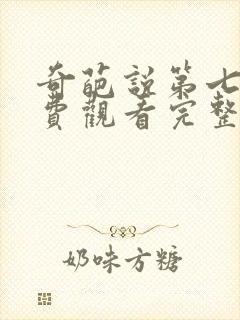 奇葩說第七
費觀看完整
奶味方糖